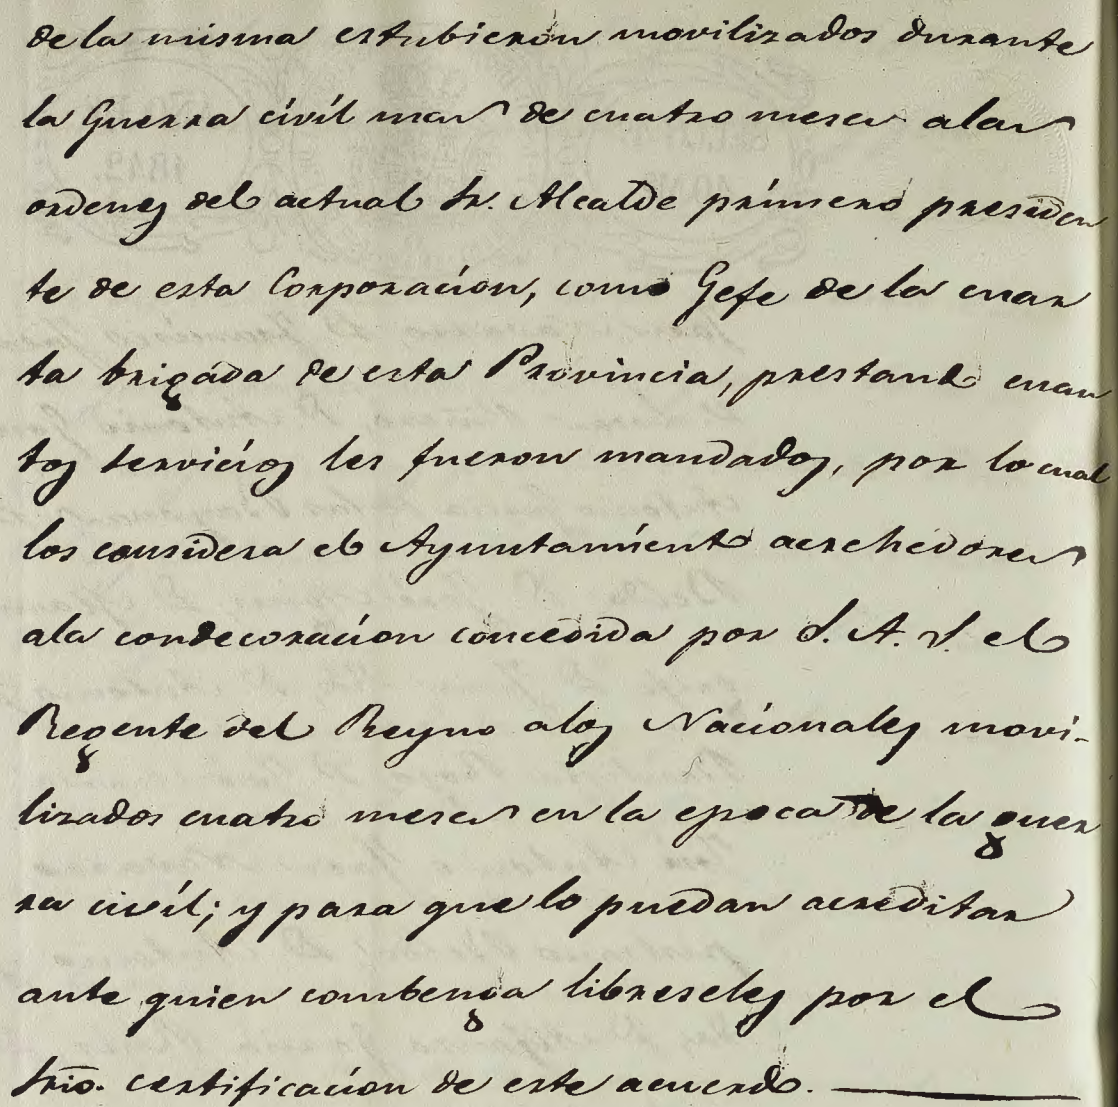 dela misma estubieron movilizados durante
la Guerra civíl mas de cuatro meses alas
ordenes del actual Sr. Alcalde primero presiden
te de esta Corporacíon, como Gefe de la cuar
ta brigada de esta Provincia, prestando cuan
tos servicíos les fueron mandados, por lo cual
los considera el Ayuntamíento acrehedores
ala condecoracíon concedida por S. A. S. el
Regente del Reyno alos Nacíonales moví-
lizados cuatro meses en la epoca de la guer
ra civíl; y para que lo puedan acreditar
ante quien combenga libreseles por el
Srio. certificacíon de este acuerdo.